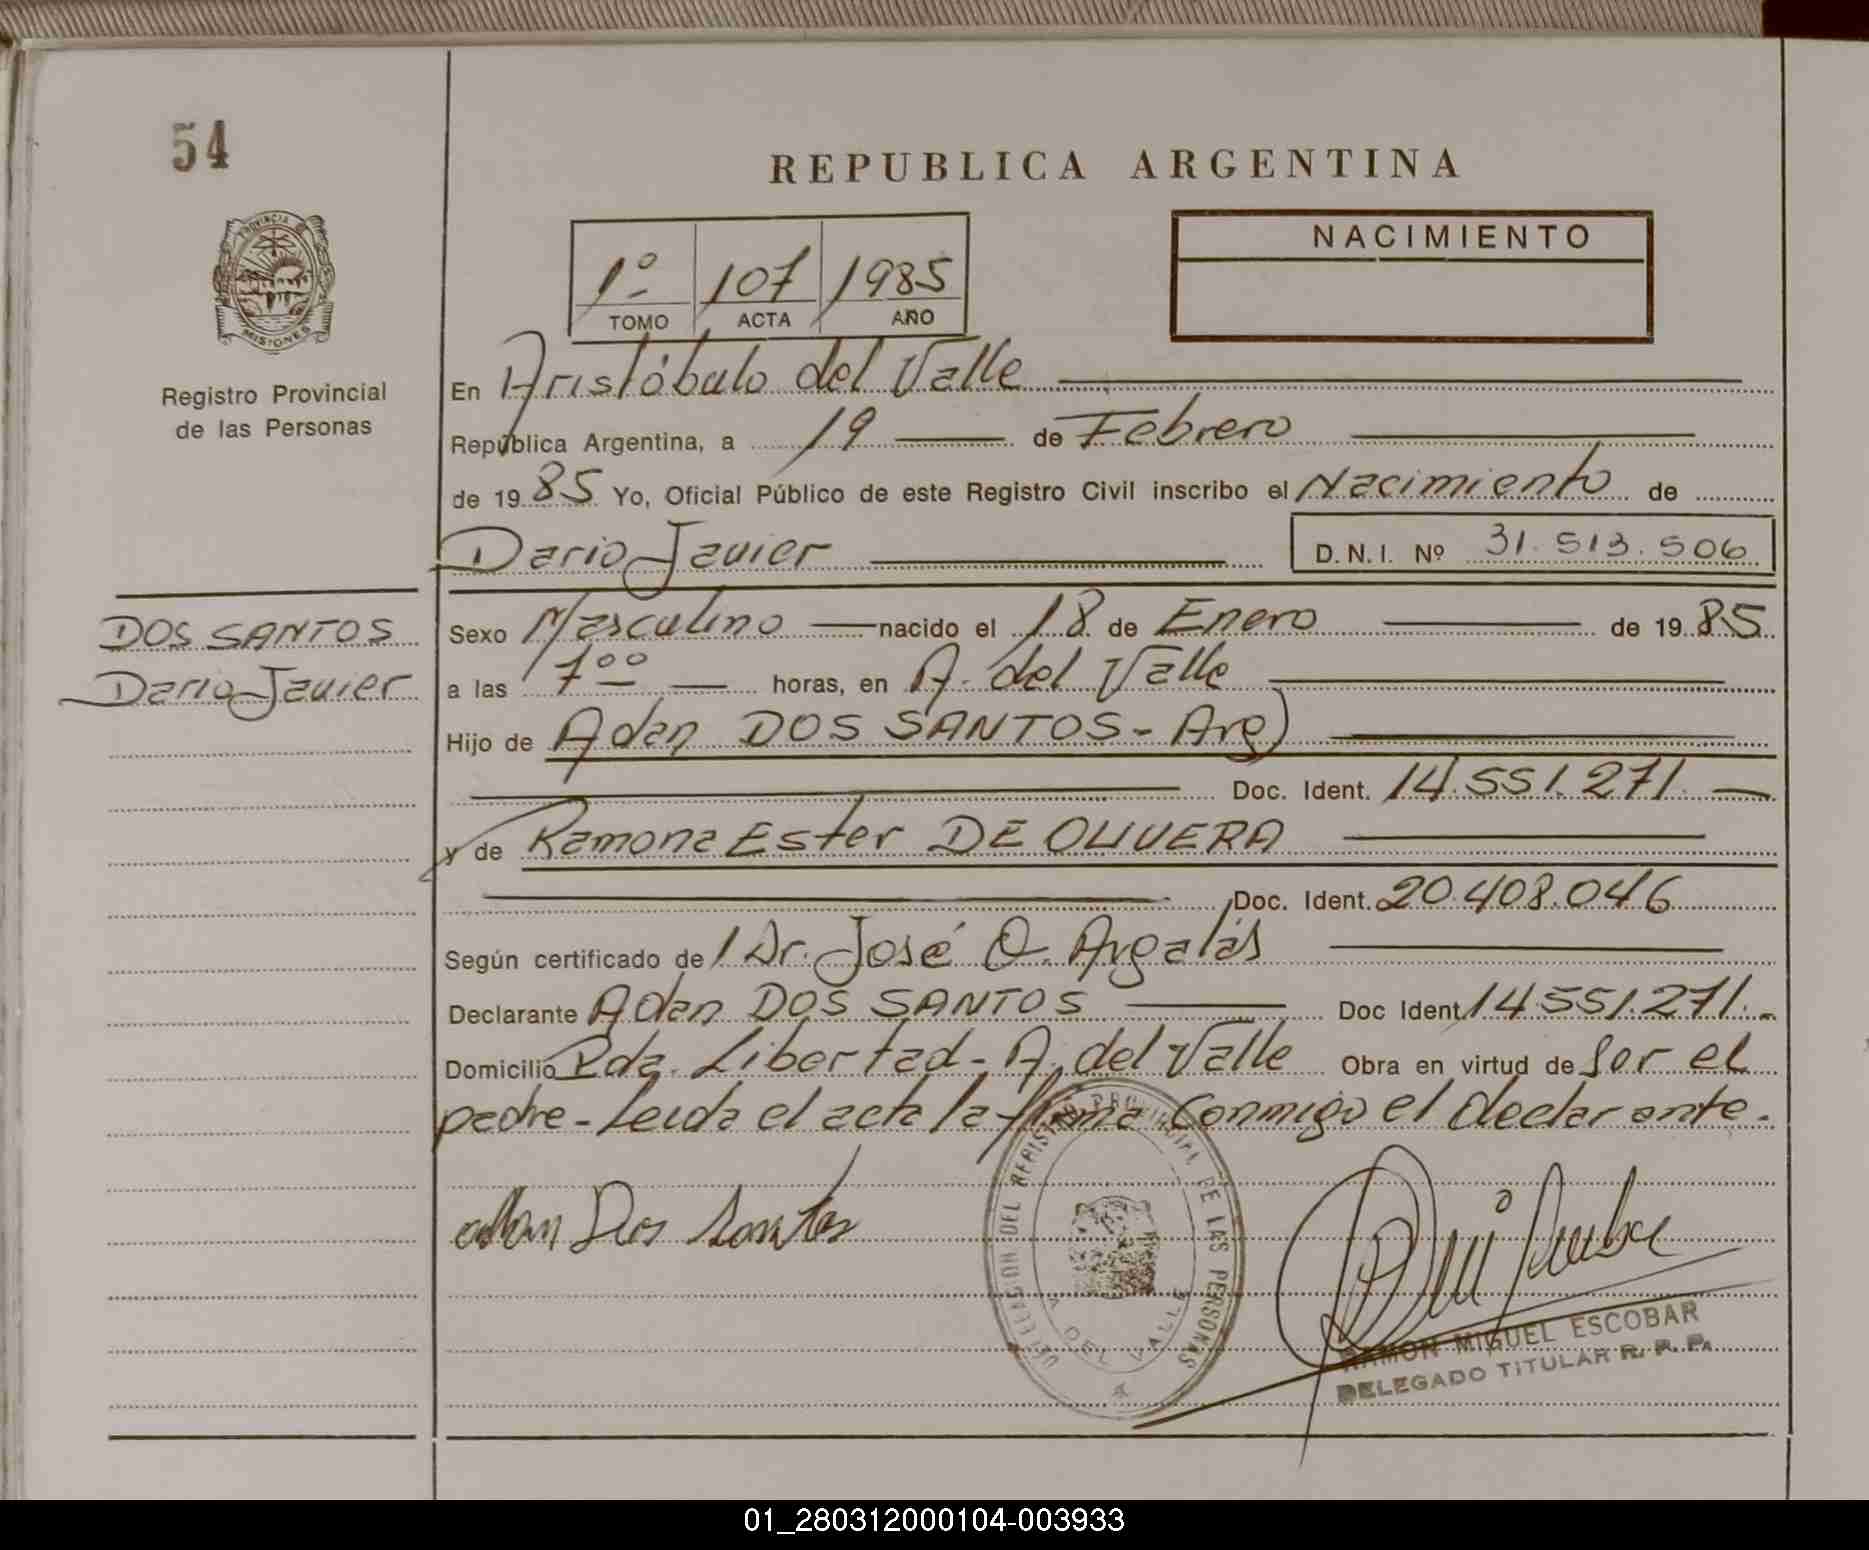 54
REPUBLICA ARGENTINA
PROVINCIA DE
MISIONES
Registro Provincial
de las Personas
1º 107 1985
TOMO ACTA AÑO
NACIMIENTO
En Aristóbulo del Valle
República Argentina, a 19 de Febrero
de 1985 Yo, Oficial Público de este Registro Civil inscribo el Nacimiento de
Dario Javier D.N.I. Nº 31.513.506
DOS SANTOS
Dario Javier
Sexo Masculino nacido el 18 de Enero de 1985
a las 7⁰⁰ horas, en A. del Valle
Hijo de Adan DOS SANTOS - Arg)
Doc. Ident. 14.551.271.
y de Ramona Ester DE OLIVERA
Doc. Ident. 20.408.046
Según certificado de / Dr. José O. Argalás
Declarante Adan DOS SANTOS Doc Ident 14.551.271.-
Domicilio Pda. Libertad - A. del Valle Obra en virtud de Ser el
padre - Leida el acta la firma conmigo el declarante.
adan Dos Santos
DELEGACION DEL REGISTRO PROVINCIAL DE LAS PERSONAS
A DEL VALLE
RAMON MIGUEL ESCOBAR
DELEGADO TITULAR R. P. P.
01_280312000104-003933